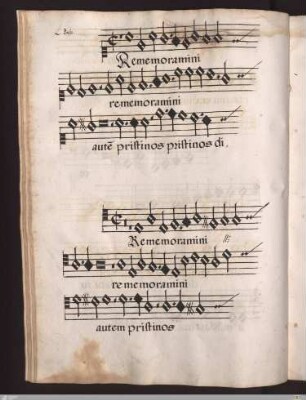 Rememoramini
rememoramini
autē pristinos pristinos di,
Rememoramini
rememoramini
autem pristinos